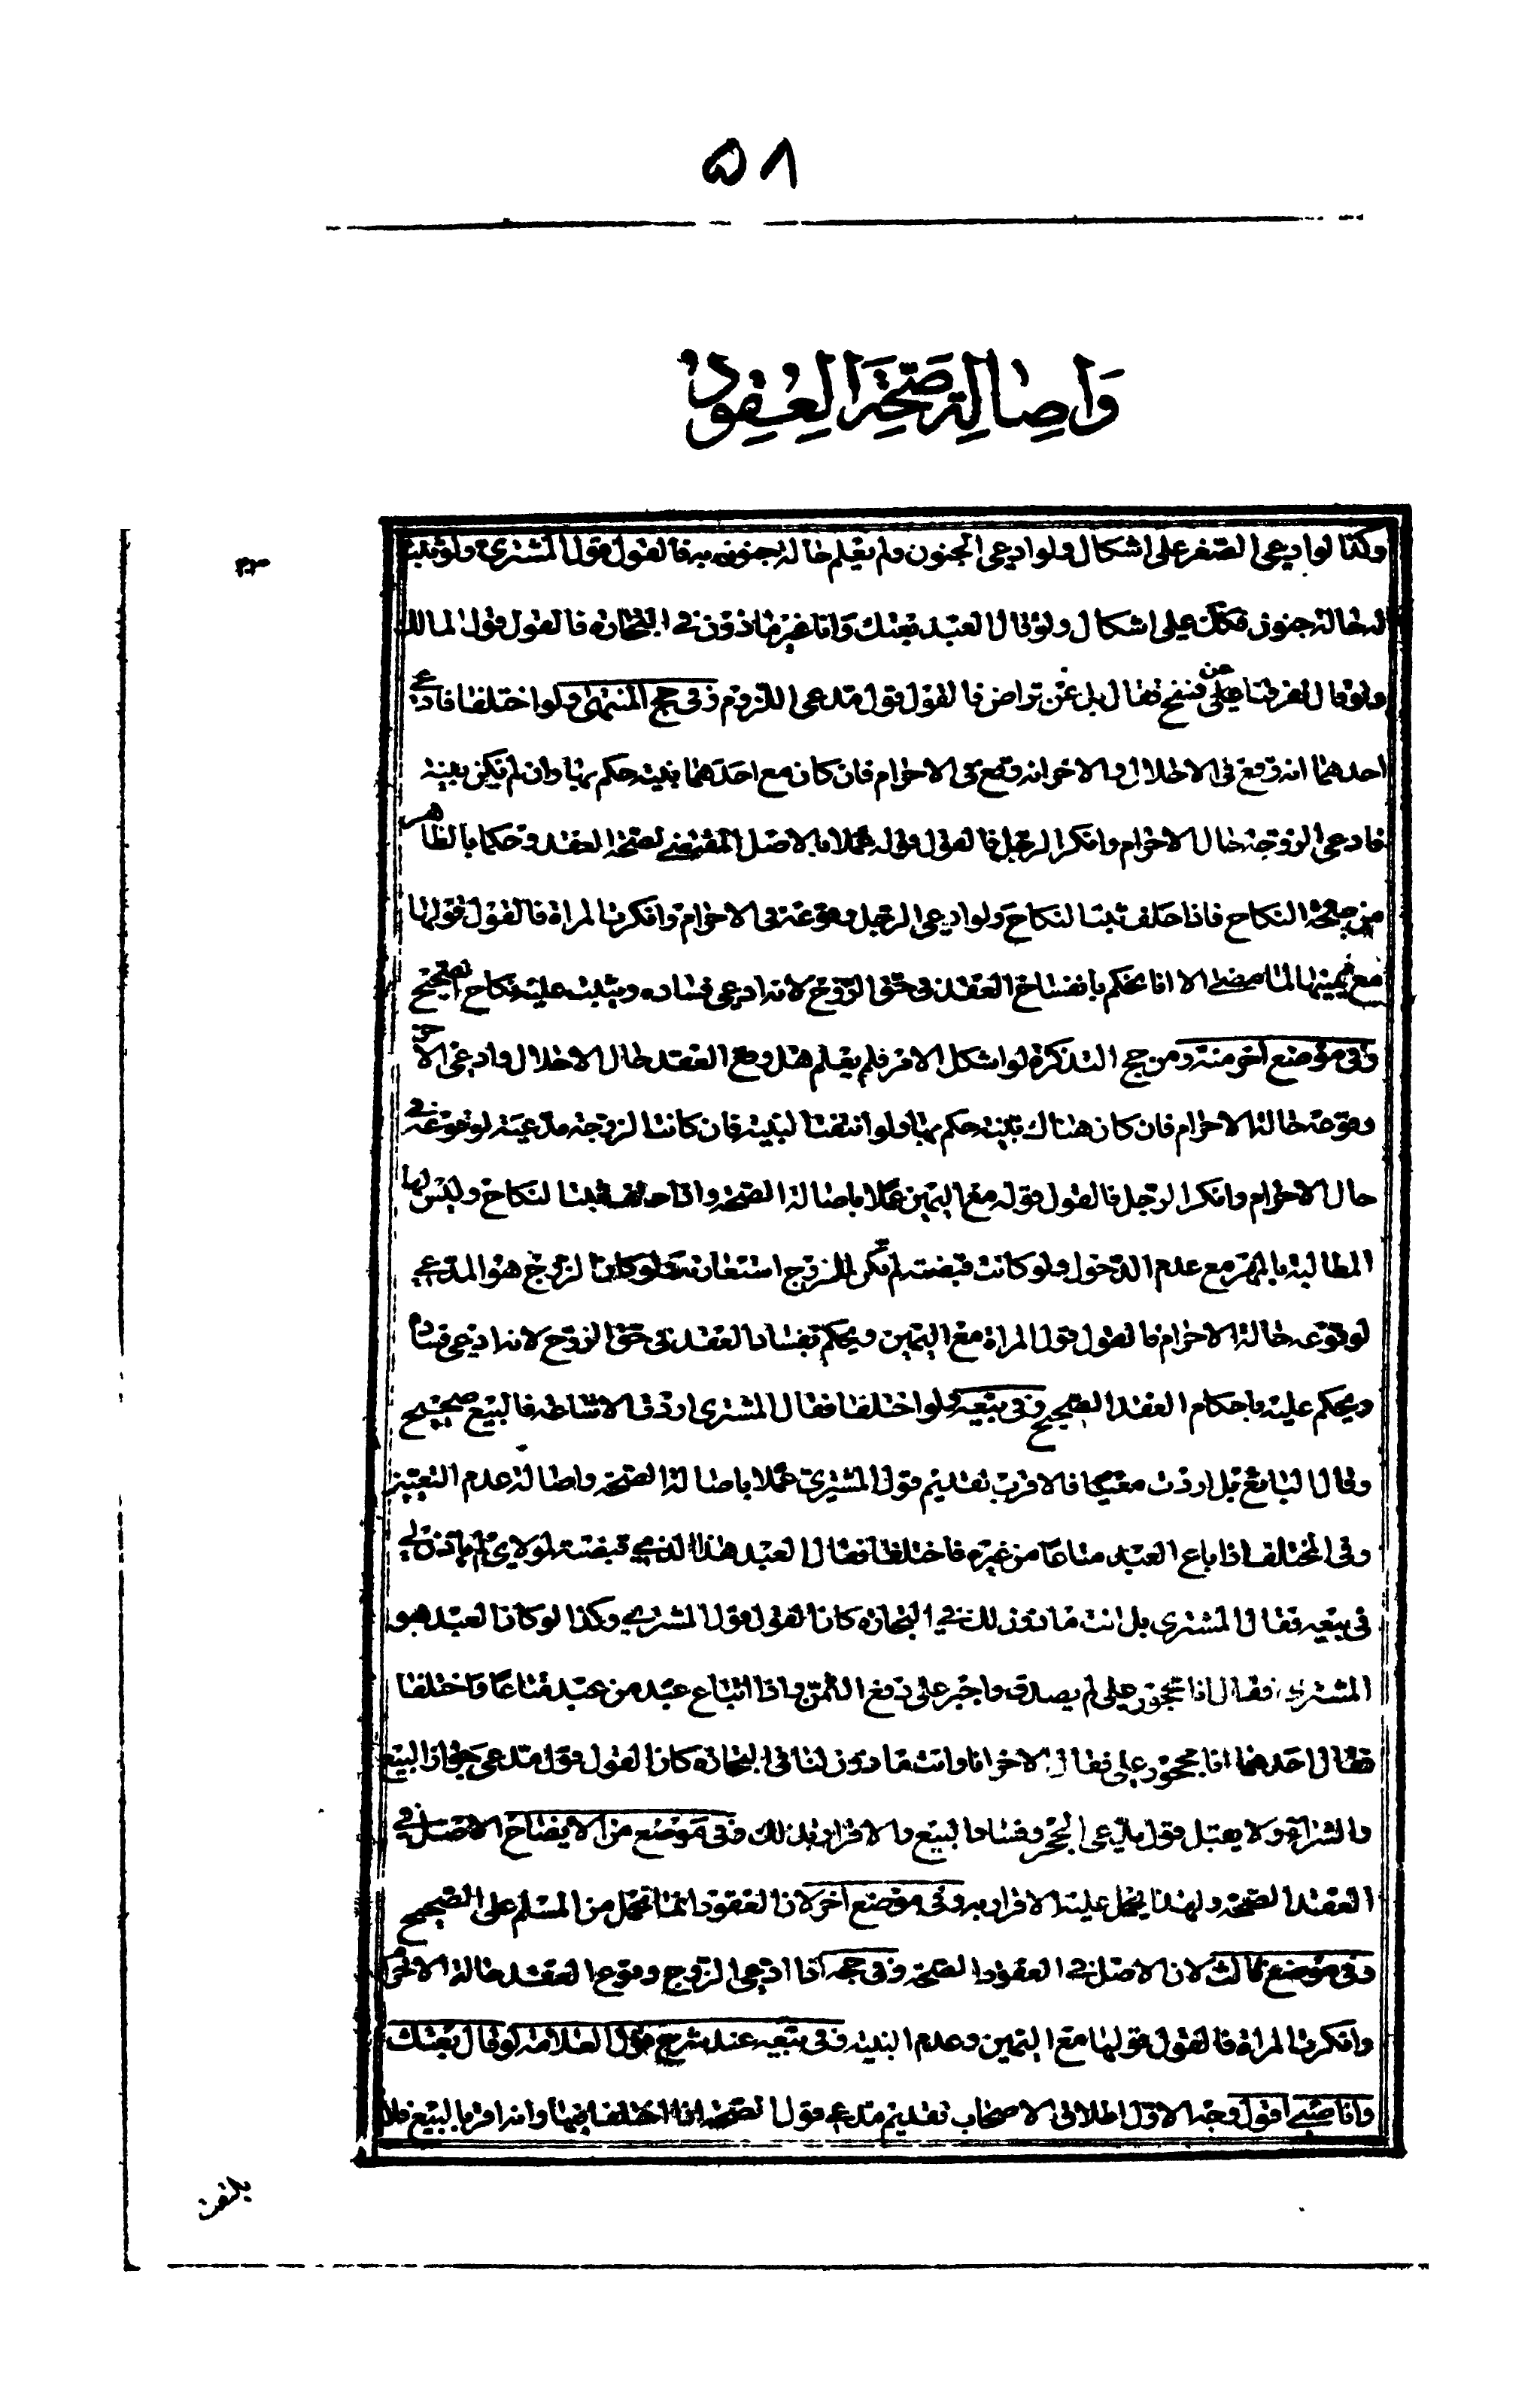 ٥٨
وَاصالة صحّة العقود
وكذا لو ادعى الصغر على اشكال ولو ادعى الجنون ولم يعلم حالة جنون به فالقول قول المشترى ولو ثبت
له حالة جنون فكك على اشكال ولو قال العبد بعتك وانا غير ماذون في التجارة فالقول قول المالك
ولو قال تفرقنا عن فسخ فقال بل عن تراض فالقول قول مدعى اللزوم وفى حج المنتهى ولو اختلفا فادعى
احدهما انه وقع فى الاحلال والاخر انه وقع فى الاحرام فان كان مع احدهما بينة حكم بها وان لم يكن بينة
فادعى الزوجة حال الاحرام وانكر الرجل فالقول قوله عملا بالاصل المقتضى لصحة العقد وحكما بالظاهر
من صحة النكاح فاذا حلف ثبت النكاح ولو ادعى الرجل وقوعه فى الاحرام وانكرت المراة فالقول قولها
مع يمينها لما مضى الا انا نحكم بانفساخ العقد فى حق الزوج لانه ادعى فساده ويثبت عليه نكاح الصحيح
وفى موضع اخر منه ومن حج التذكرة لو اشكل الامر فلم يعلم هل وقع العقد حال الاحلال وادعى الاخر
وقوعه حالة الاحرام فان كان هناك بينة حكم بها ولو انتفت البينة فان كانت الزوجة مدعية لوقوعه في
حال الاحرام وانكر الرجل فالقول قوله مع اليمين عملا باصالة الصحة واذا حلف ثبت النكاح وليس لها
المطالبة بالمهر مع عدم الدخول ولو كانت قبضته لم يكن للزوج استعادته ولو كان الزوج هو المدعي
لوقوعه حالة الاحرام فالقول قول المراة مع اليمين ويحكم بفساد العقد فى حق الزوج لانه ادعى فساده
ويحكم عليه باحكام العقد الصحيح وفى بيعه ولو اختلفا فقال المشترى اردت الاشاطة فالبيع صحيح
وقال البايع بل اردت معينا فالاقرب تقديم قول المشترى عملا باصالة الصحة واصالة عدم التعيين
وفى المختلف اذا باع العبد متاعا من غيره فاختلفا فقال العبد هذا الذي قبضته لمولاى لم ياذن لي
فى بيعه فقال المشترى بل انت ماذون لك في التجارة كان القول قول المشتري وكذا لو كان العبد هو
المشترى فقال انا محجور على لم يصدق واجبر على دفع الثمن واذا ابتاع عبد من عبد متاعا فاختلفا
فقال احدهما انا محجور على فقال الاخر انا وانت ماذون لنا فى التجارة كان القول قول مدعى جواز البيع
والشراء ولا يقبل قول مدعى الحجر وفساد البيع والاقرار بذلك وفى موضع من الايضاح الاصل في
العقد الصحة ولهذا يحمل عليه الاقرار به وفى موضع اخر لان العقود انما تحمل من المسلم على الصحيح
وفى موضع ثالث لان الاصل في العقود الصحة وفى حجه اذا ادعى الزوج وقوع العقد حالة الاحرام
وانكرت المراة فالقول قولها مع اليمين وعدم البينة وفى بيعه عند شرح قول العلامة لو قال بعتك
وانا صبي اقول وجه الاول اطلاق الاصحاب تقديم مدعى قول الصحة اذا اختلفا فيها وانه اقر بالبيع فلا